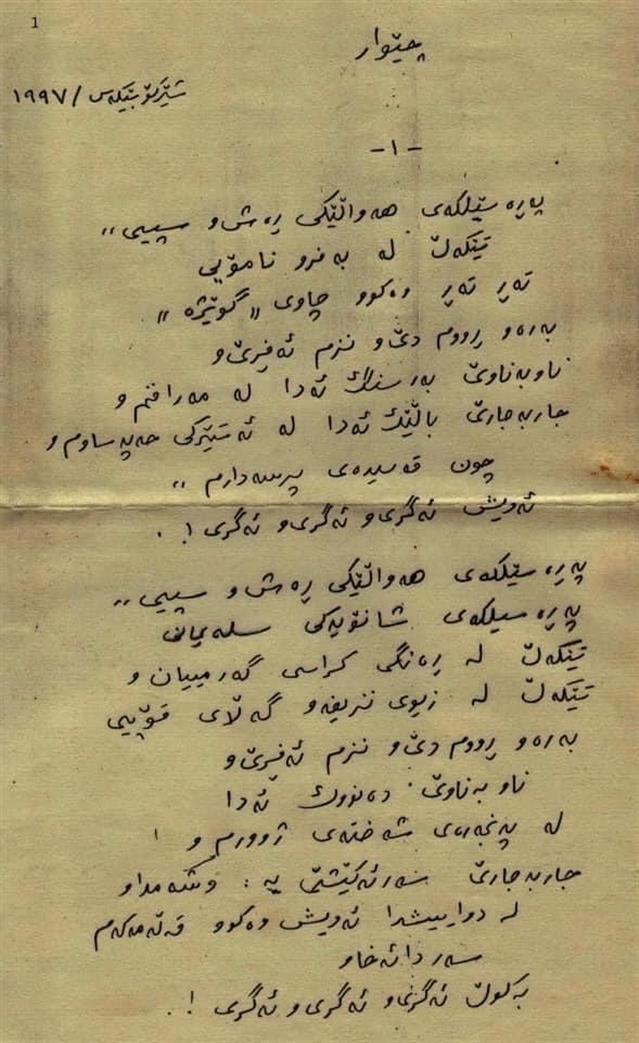 1
چێوار
شێرکۆ بێکەس / ١٩٩٧
-١-
پەڕە سێلکەی هەواڵێکی ڕەش و سپیی ,,
تێکەڵ لە بەفرو نامۆیی
تەڕ تەڕ وەکوو چاوی " گوێژە "
بەرەو ڕووم دێ و نزم ئەفڕێ و
ناو بەناوێ بەرسنگ ئەدا لە مەراقم و
جاربەجارێ باڵێک ئەدا لە ئەستێرکی حەپەساوم و
چون قەسیدەی پرسەدارم ,,
ئەویش ئەگری و ئەگری و ئەگری ! .
پەڕە سێلکەی هەواڵێکی ڕەش و سپیی ,,
پەڕە سیلکەی شانۆیەکی سلەیمانی
تێکەڵ لە ڕەنگی کراسی گەرمییان و
تێکەڵ لە زیوی نزیفەو گەڵای قۆپیی
بەرەو ڕووم دێ و نزم ئەفڕێ و
ناو بەناوێ دەنووک ئەدا
لە پەنجەرەی شەختەی ژوورم و
جاربەجارێ سەرئەکێشێ بە : وشەمداو
لە دواییشدا ئەویش وەکوو قەڵەمەکەم
سەر دائەخاو
بەکوڵ ئەگری و ئەگری و ئەگری ! .